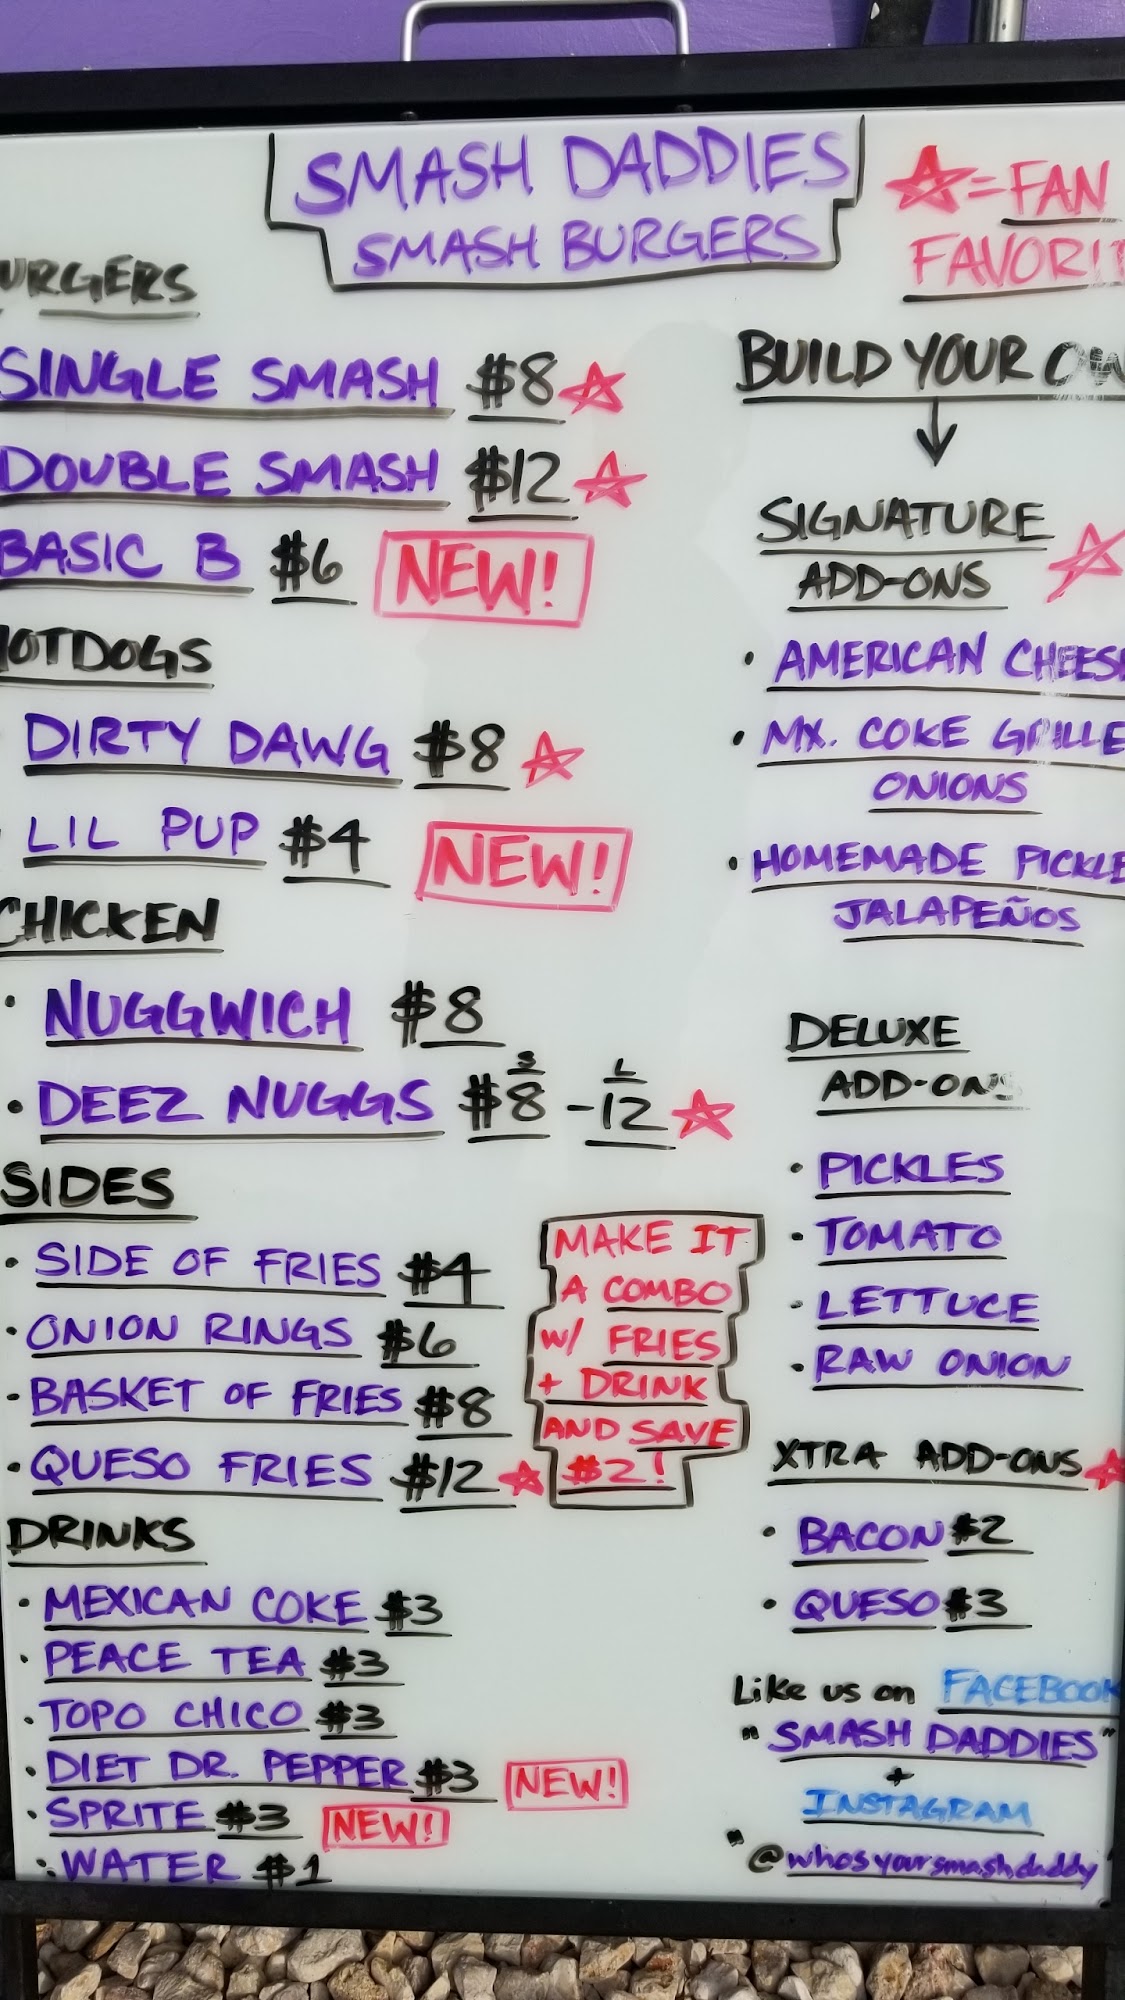 SMASH DADDIES
SMASH BURGERS
= FAN
FAVORIT
URGERS
SINGLE SMASH $8
DOUBLE SMASH $12
BASIC B $6 NEW!
HOTDOGS
DIRTY DAWG $8
LIL PUP $4 NEW!
CHICKEN
• NUGGWICH $8
S L
• DEEZ NUGGS $8 - 12
SIDES
• SIDE OF FRIES $4
• ONION RINGS $6
• BASKET OF FRIES $8
• QUESO FRIES $12
MAKE IT
A COMBO
W/ FRIES
+ DRINK
AND SAVE
$2!
DRINKS
• MEXICAN COKE $3
• PEACE TEA $3
• TOPO CHICO $3
• DIET DR. PEPPER $3 NEW!
• SPRITE $3 NEW!
• WATER $1
BUILD YOUR OW
SIGNATURE
ADD-ONS
• AMERICAN CHEESE
• MX. COKE GRILLE
ONIONS
• HOMEMADE PICKLE
JALAPEÑOS
DELUXE
ADD-ONS
• PICKLES
• TOMATO
• LETTUCE
• RAW ONION
XTRA ADD-ONS
• BACON $2
• QUESO $3
Like us on FACEBOOK
"SMASH DADDIES"
+
INSTAGRAM
"@whosyoursmashdaddy"